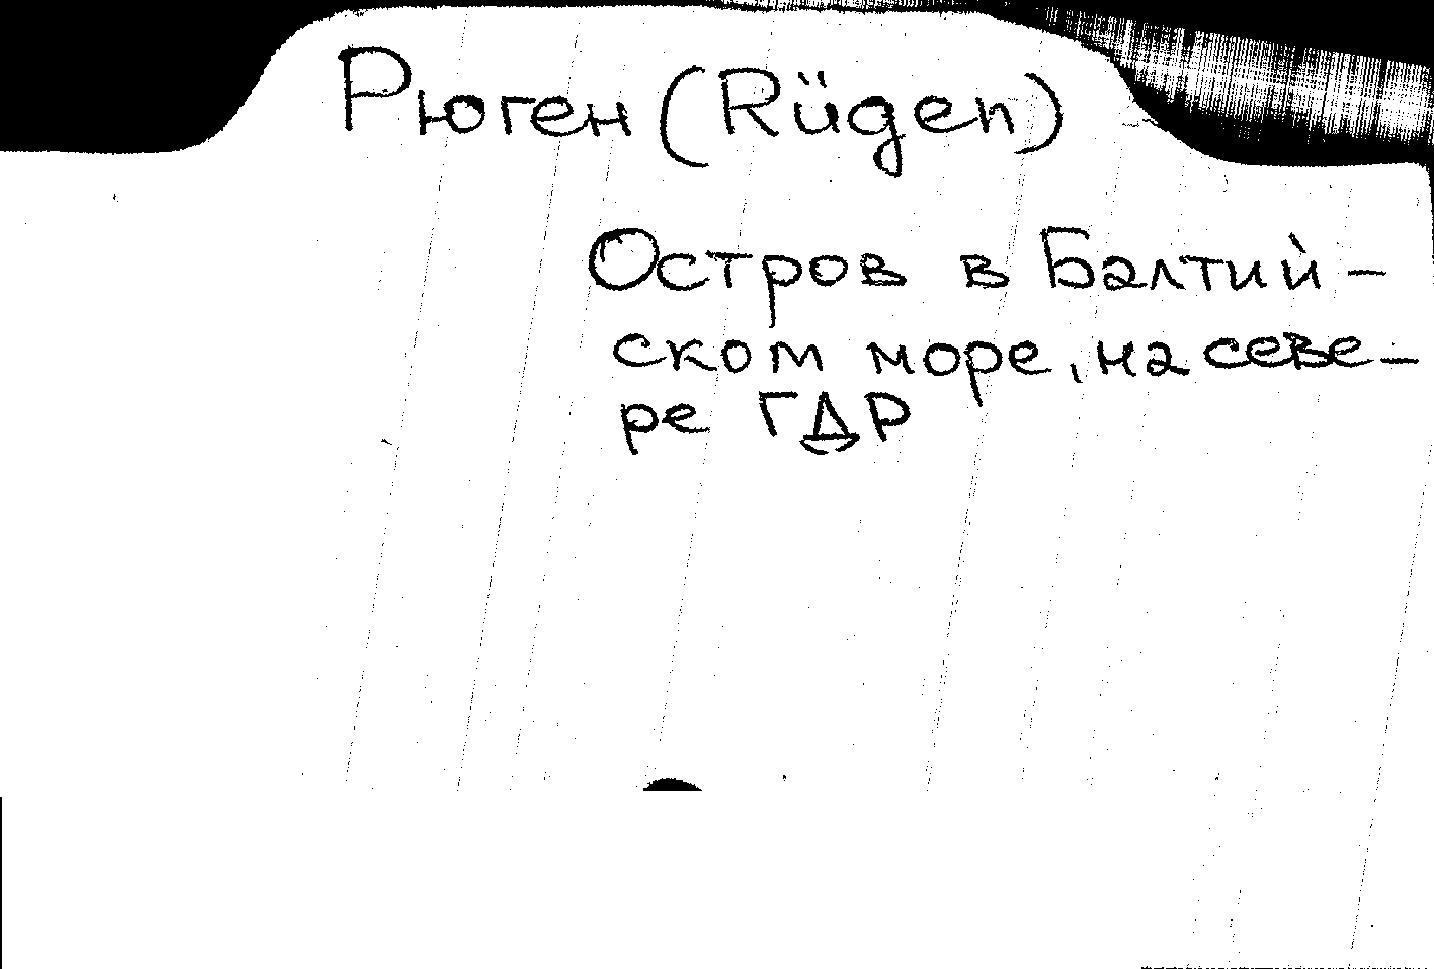 Рюген (Rügen)
Остров в Балтий-
ском море, на севе-
ре ГДР